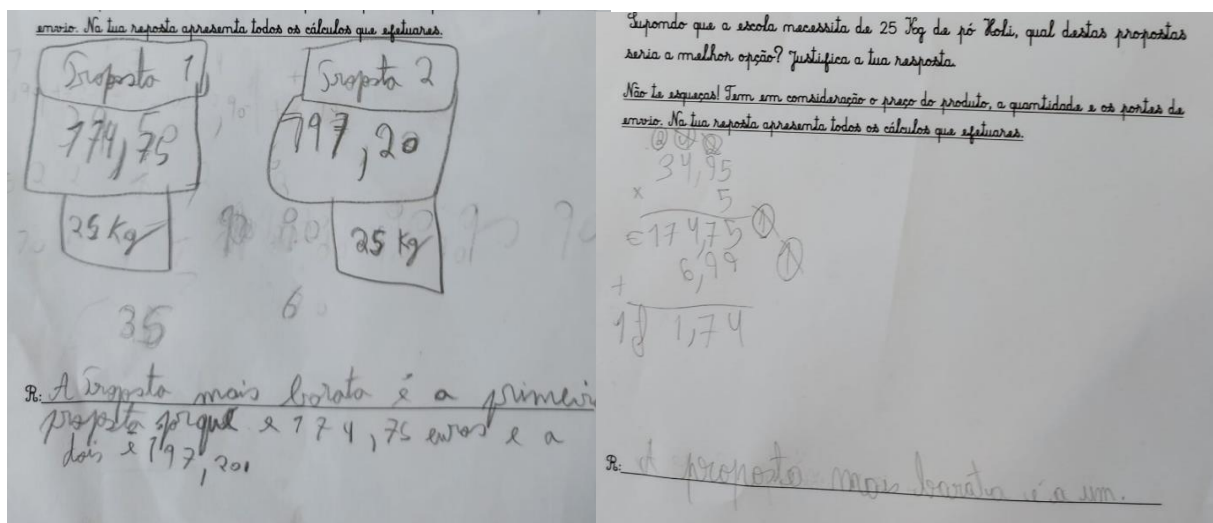 envio. Na tua resposta apresenta todos os cálculos que efetuares.
Proposta 1
174,75
25 Kg
Proposta 2
197,20
25 Kg
35
6
R: A Proposta mais barata é a primeira
proposta porque e 174,75 euros e a
dois é 197,20
Supondo que a escola necessita de 25 Kg de pó Holi, qual destas propostas
seria a melhor opção? Justifica a tua resposta.
Não te esqueças! Tem em consideração o preço do produto, a quantidade e os portes de
envio. Na tua resposta apresenta todos os cálculos que efetuares.
34,95
x 5
€174,75
6,99
+
181,74
R: A proposta mais barata é a um.